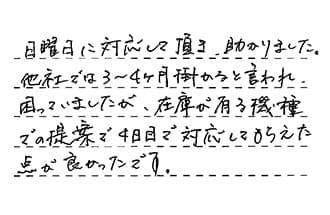 日曜日に対応して頂き、助かりました。
他社では3～4ヶ月掛かると言われ、
困っていましたが、在庫が有る機種
での提案で4日目で対応してもらえた
点が良かったです。